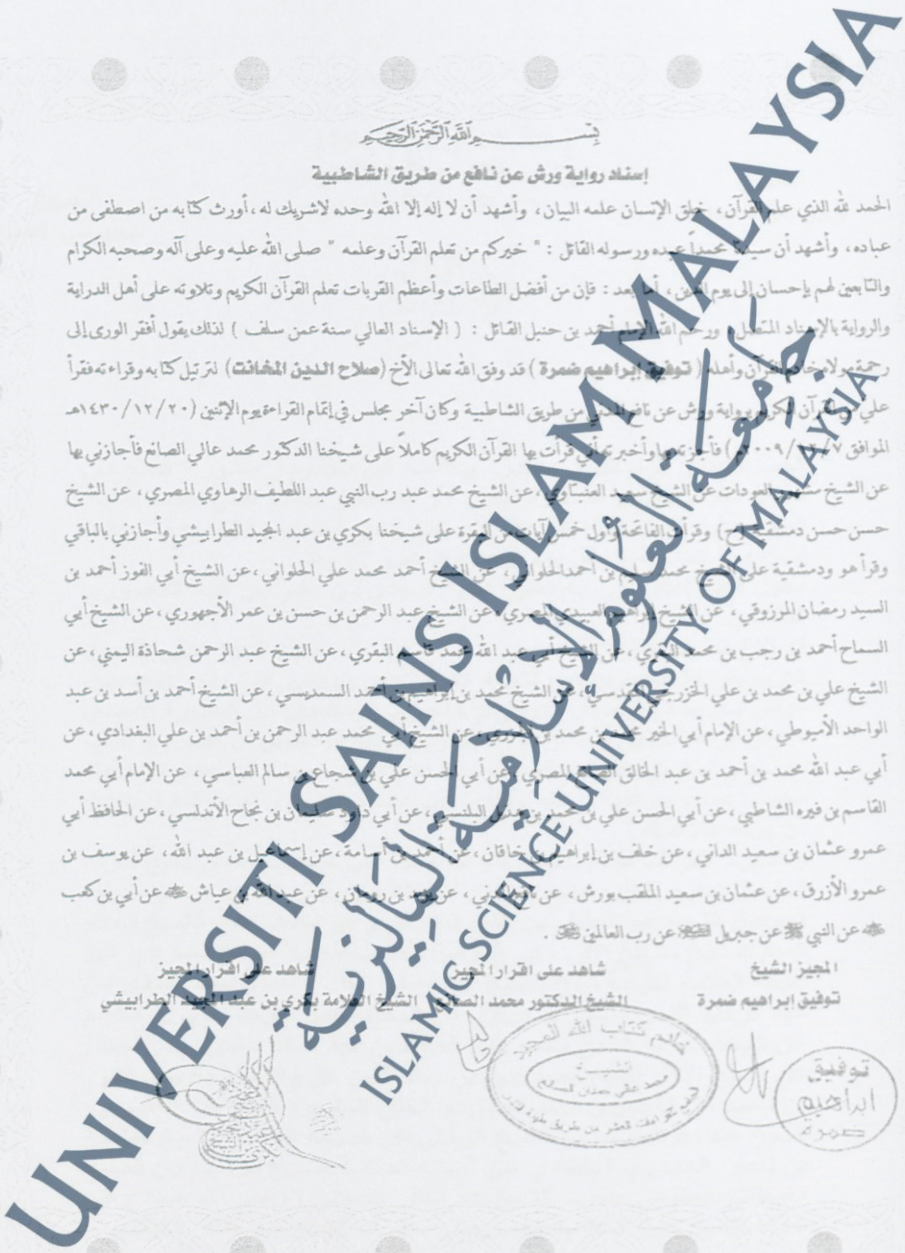 بسم الله الرحمن الرحيم
إسناد رواية ورش عن نافع من طريق الشاطبية
الحمد لله الذي علم القرآن، خلق الإنسان علمه البيان، وأشهد أن لا إله إلا الله وحده لاشريك له، أورث كتابه من اصطفى من
عباده، وأشهد أن محمداً عبده ورسوله القائل : " خيركم من تعلم القرآن وعلمه " صلى الله عليه وعلى آله وصحبه الكرام
والتابعين لهم بإحسان إلى يوم الدين، أما بعد : فإن من أفضل الطاعات وأعظم القربات تعلم القرآن الكريم وتلاوته على أهل الدراية
والرواية بالإسناد المتصل، ورحم الله الإمام أحمد بن حنبل القائل : ( الإسناد العالي سنة عمن سلف ) لذلك يقول أفقر الورى إلى
رحمة مولاه القرآن وأهله ( توفيق إبراهيم ضمرة ) قد وفق الله تعالى الأخ (صلاح الدين المغانت) لترتيل كتابه وقراءته فقرأ
علي القرآن الكريم برواية ورش عن نافع من طريق الشاطبية وكان آخر مجلس في إتمام القراءة يوم الإثنين (١٤٣٠/١٢/٢٠هـ
الموافق ٢٠٠٩ فأجزته بها وأخبرته أني قرأت بها القرآن الكريم كاملاً على شيخنا الدكتور محمد عالي الصانع فأجازني بها
عن الشيخ العودات عن الشيخ سعيد، عن الشيخ محمد عبد رب النبي عبد اللطيف الرهاوي المصري، عن الشيخ
حسن حسن دمشقية وقرأت الفاتحة وأول خمس آيات من البقرة على شيخنا بكري بن عبد المجيد الطرابيشي وأجازني بالباقي
وقرأ هو ودمشقية على الشيخ محمد سليم بن أحمد الحلواني، عن الشيخ أحمد محمد علي الحلواني، عن الشيخ أبي الفوز أحمد بن
السيد رمضان المرزوقي، عن الشيخ إبراهيم العبيدي المصري، عن الشيخ عبد الرحمن بن حسن بن عمر الأجهوري، عن الشيخ أبي
السماح أحمد بن رجب بن محمد البقري، عن الشيخ أبي عبد الله محمد قاسم البقري، عن الشيخ عبد الرحمن شحاذة اليمني، عن
الشيخ علي بن محمد بن علي الخزرجي المقدسي، عن الشيخ محمد بن إبراهيم بن أحمد السمديسي، عن الشيخ أحمد بن أسد بن عبد
الواحد الأميوطي، عن الإمام أبي الخير محمد بن محمد الجزري، عن الشيخ أبي محمد عبد الرحمن بن أحمد بن علي البغدادي، عن
أبي عبد الله محمد بن أحمد بن عبد الخالق المصري، عن أبي الحسن علي بن شجاع بن سالم العباسي، عن الإمام أبي محمد
القاسم بن فيره الشاطبي، عن أبي الحسن علي بن محمد بن هذيل البلنسي، عن أبي داود سليمان بن نجاح الأندلسي، عن الحافظ أبي
عمرو عثمان بن سعيد الداني، عن خلف بن إبراهيم بن خاقان، عن أحمد بن أسامة، عن إسماعيل بن عبد الله، عن يوسف بن
عمرو الأزرق، عن عثمان بن سعيد الملقب بورش، عن نافع المدني، عن يزيد بن رومان، عن عبد الله بن عياش ﷺ عن أبي بن كعب
عن النبي ﷺ عن جبريل عن رب العالمين .
المجيز الشيخ شاهد على اقرار المجيز شاهد على اقرار المجيز
توفيق إبراهيم ضمرة الشيخ الدكتور محمد الصانع الشيخ العلامة بكري بن عبد المجيد الطرابيشي
خاتم كتاب الله المجيد
الشيخ
توفيق
ابراهيم
ضمرة
UNIVERSITI SAINS ISLAM MALAYSIA
جامعة العلوم الإسلامية الماليزية
ISLAMIC SCIENCE UNIVERSITY OF MALAYSIA